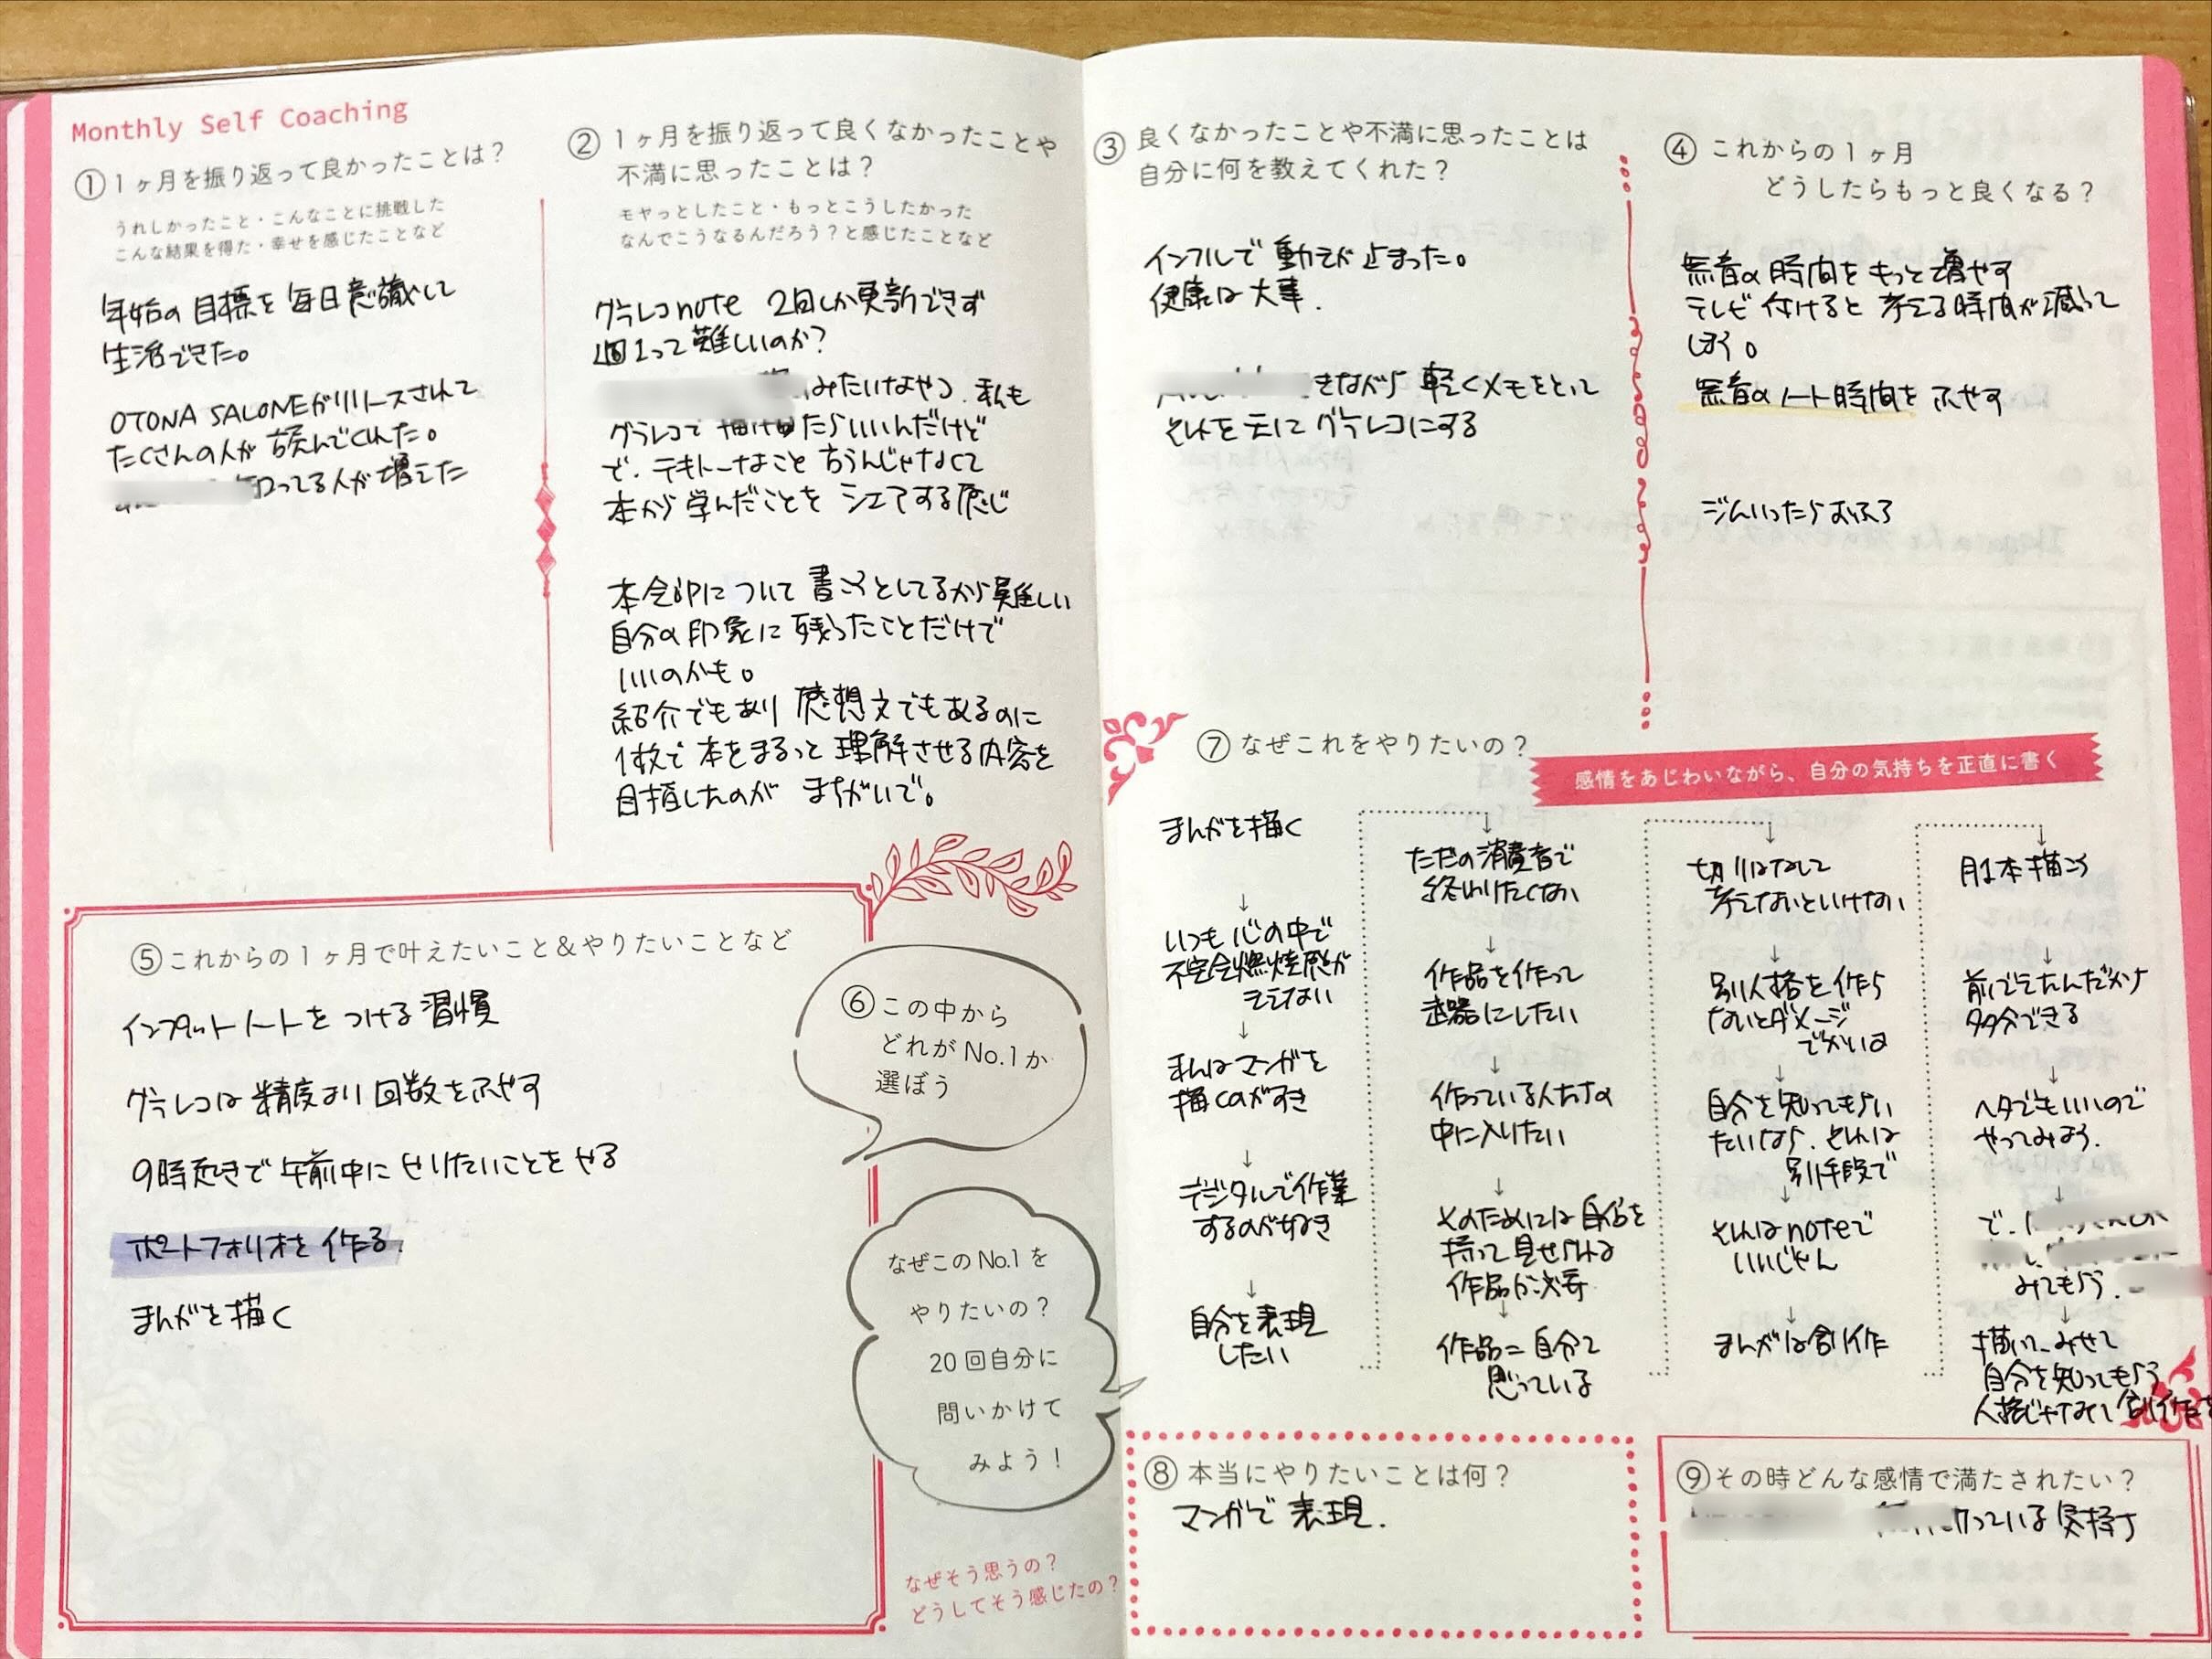 Monthly Self Coaching
①1ヶ月を振り返って良かったことは？
うれしかったこと・こんなことに挑戦した
こんな結果を得た・幸せを感じたことなど
年始の目標を毎日意識して
生活できた。
OTONA SALONEがリリースされて
たくさんの人が読んでくれた。
知ってる人が増えた
②1ヶ月を振り返って良くなかったことや
不満に思ったことは？
モヤっとしたこと・もっとこうしたかった
なんでこうなるんだろう？と感じたことなど
グラレコnote 2回しか更新できず
週1って難しいのか?
みたいなやつ、私も
グラレコで描けたらいいんだけど
で、テキトーなこと言うんじゃなくて
本から学んだことを シェアする感じ
本全部について書こうとしてるから難しい
自分の印象に残ったことだけで
いいのかも。
紹介でもあり 感想文でもあるのに
1枚で本をまるっと理解させる内容を
目指したのが まちがいで。
③良くなかったことや不満に思ったことは
自分に何を教えてくれた？
インフルで 動きが止まった。
健康は大事.
きながら 軽くメモをとって
それを元に グラレコにする
④これからの1ヶ月
どうしたらもっと良くなる？
無音の時間をもっと増やす
テレビ付けると 考える時間が減って
しまう。
無音のノート時間を ふやす
ジムいったらおふろ
⑤これからの1ヶ月で叶えたいこと＆やりたいことなど
インプットノートを つける習慣
グラレコは精度より回数をふやす
9時起きで午前中にやりたいことをやる
ポートフォリオを作る.
まんがを描く
⑥この中から
どれがNo.1か
選ぼう
なぜこのNo.1を
やりたいの？
20回自分に
問いかけて
みよう！
なぜそう思うの？
どうしてそう感じたの？
⑦なぜこれをやりたいの？
感情をあじわいながら、自分の気持ちを正直に書く
まんがを描く
↓
いつも心の中で
不完全燃焼感が
きえない
↓
私はマンガを
描くのがすき
↓
デジタルで作業
するのが好き
↓
自分を表現
したい
↓
ただの消費者で
終わりたくない
↓
作品を作って
武器にしたい
↓
作っている人たちの
中に入りたい
↓
そのためには自信を
持って見せられる
作品が必要
↓
作品＝自分と
思っている
↓
切りはなして
考えないといけない
↓
別人格を作ら
ないとダメージ
でかいよ
↓
自分を知ってもらい
たいなら、それは
別手段で
↓
それはnoteで
いいじゃん
↓
まんがは創作
↓
月1本描こう
↓
前できたんだから
多分できる
↓
ヘタでもいいので
やってみよう.
↓
で、
みてもらう.
↓
描いて、みせて
自分を知ってもらう
人格じゃなくて創作を
⑧本当にやりたいことは何？
マンガで 表現.
⑨その時どんな感情で満たされたい？
っている気持ち